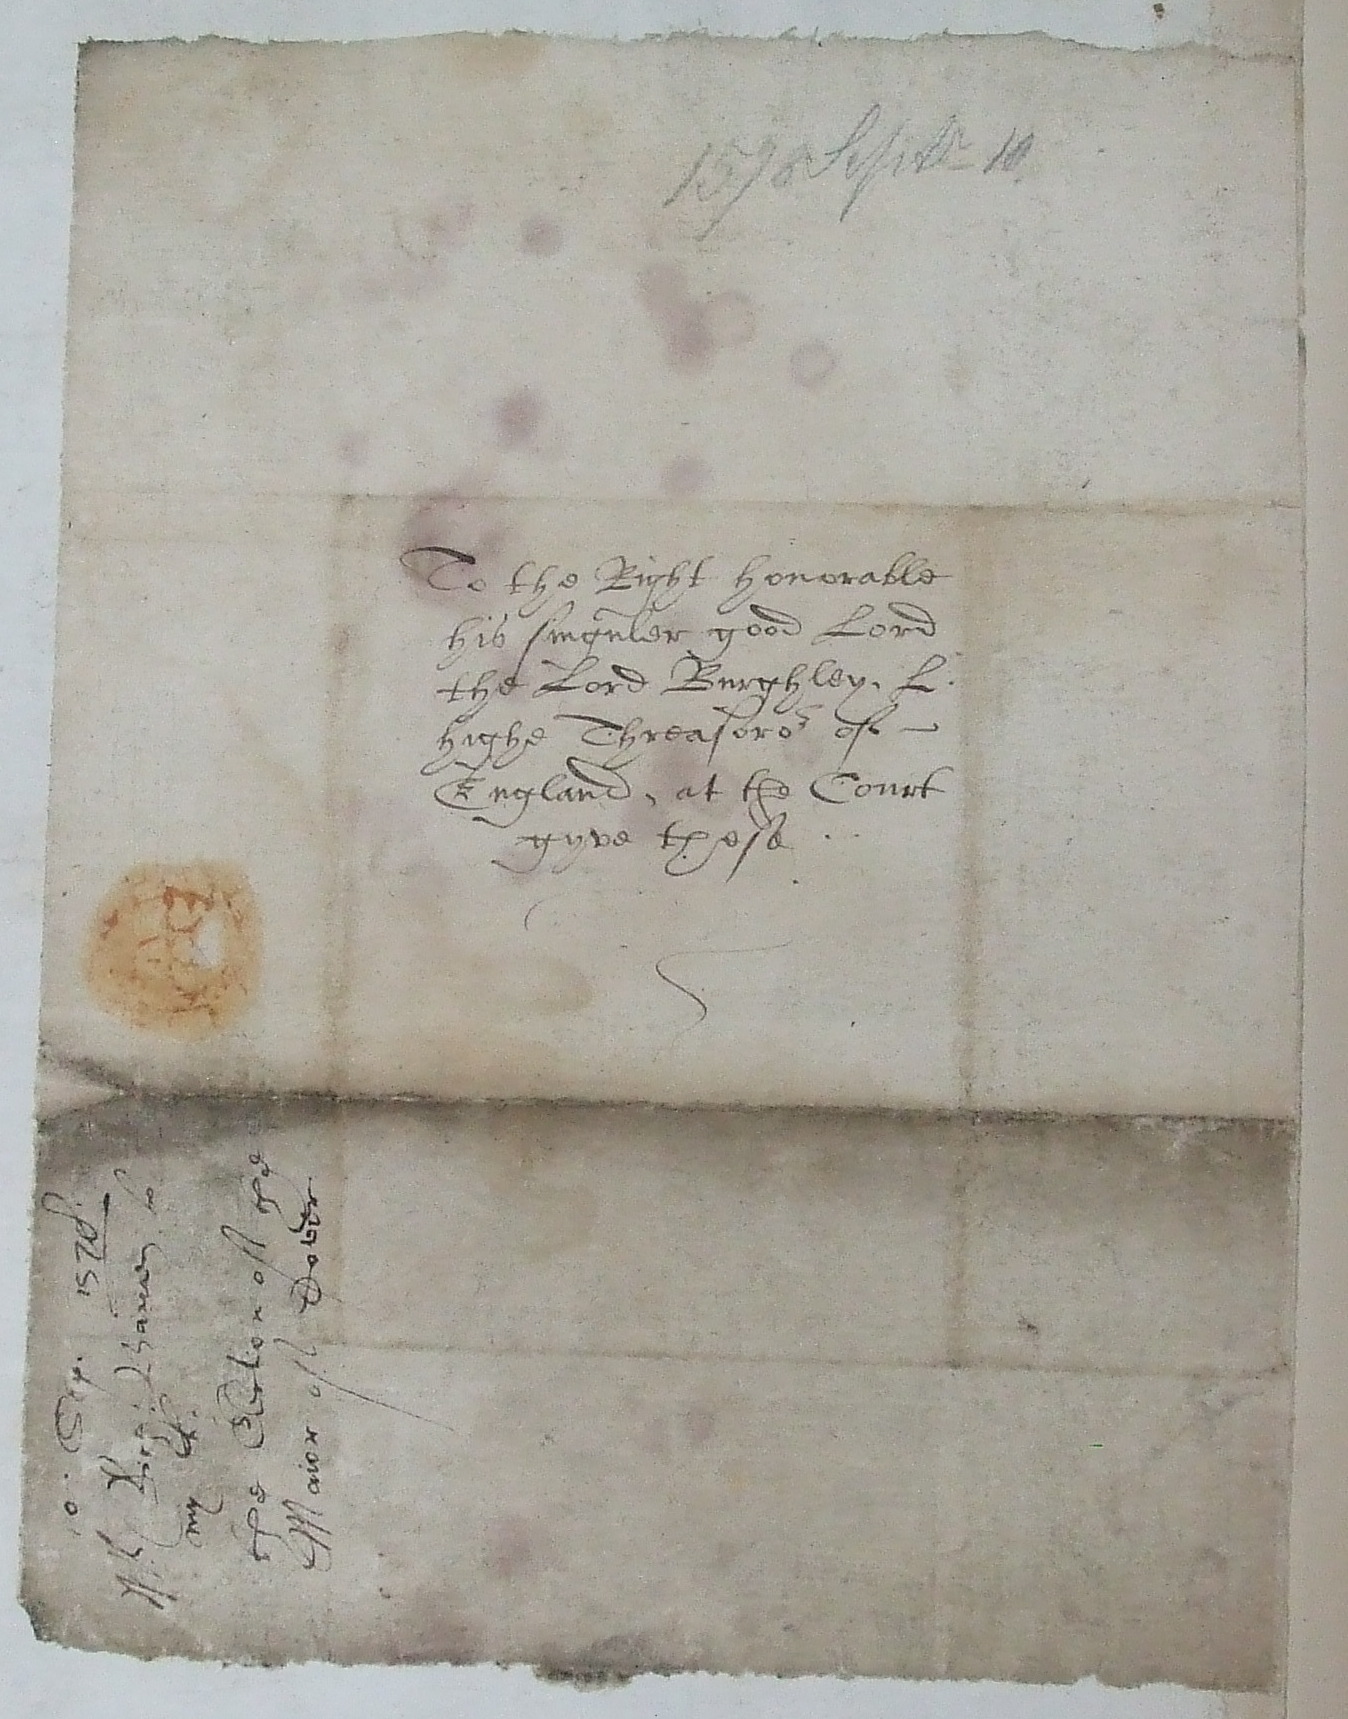 1578 Septr 10
To the Right honorable
his singuler good Lord
the Lord Burghley. L.
highe Threasoror of
England, at the Court
gyve these
10. Sep. 1578.
to
my L.
the Election of the
Maior of Dover